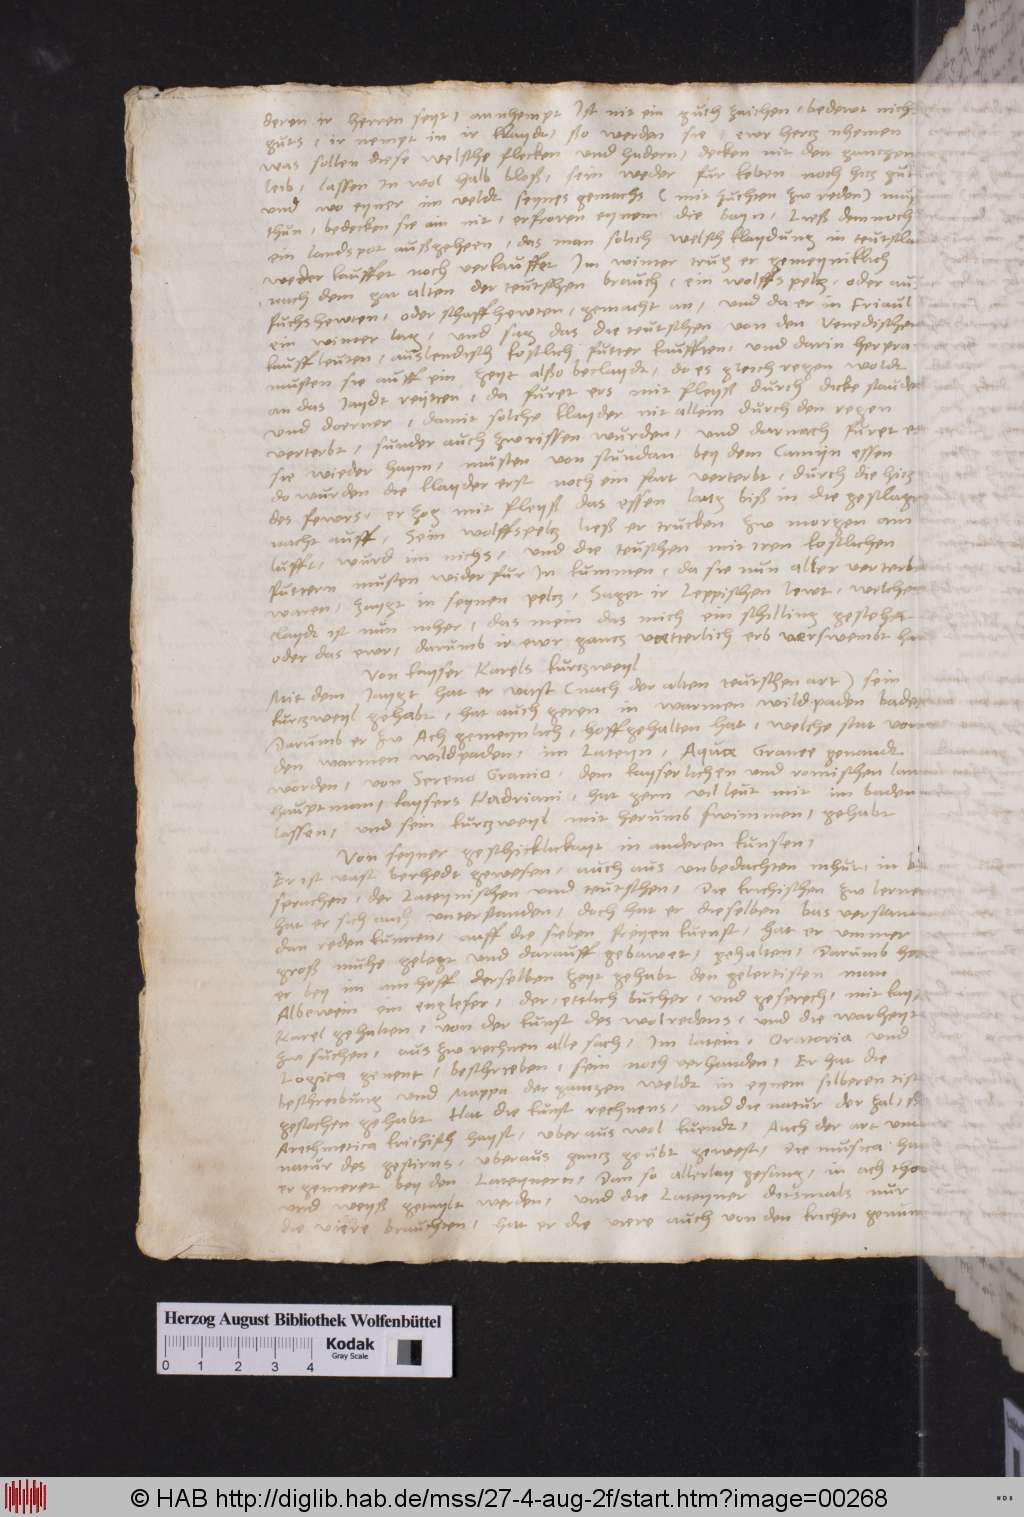 deren ir herren seyt, annhempt Ist nit ein guth zaichen, bedewt nich
guts, ir nempt in ir klaydt, so werden sie, ewr hertz nhemen
was sollen diese welsche flecken und hudern, decken nit den gantzen
leib, lassen In wol halb bloß, sein weder fur kelten noch hitz gut
und wo eyner im veldt seynes gemachs (mit zuchten zw reden) mus
thun, bedecken sie ain nit, erfroren eynem die bayn, Ließ dennoch
ein landspot außgeheen, das man solich welsch klaydung in teutschla
weder kauffet noch verkauffet Im winter trug er gemeyniklich
nach dem gar alten der teutschen brauch, ein wolffs peltz, oder aus
fuchshewten, oder schaffhewten, gemacht an, und da er in Friaul
ein winter lag, und sag das die teutschen von den Venedischen
kauffleuten, auslendisch kostlich futter kaufften, und darin herpra
musten sie auff ein zeyt also beclaydt, do es gleich regen woldt
an das Jaydt reytten, da furet ers mit fleyß durch dicke staude
und doerner, damit solche klayder nit allein durch den regen
verterbt, sunder auch zwrissen wurden, und darnach furet er
sie wieder haym, musten von stundan bey dem Camyn essen
do wurden die klayder erst noch ein fart verterbt, durch die hitz
des fewrs, er zog mit fleyß das essen lang biß in die
nacht auff, Sein wolffspeltz ließ er trucken zw morgen am
lufft, wurd im nichs, und die teuschen mit iren kostlichen
futtern musten wider fur In kummen, da sie nun aller verterbt
waren, zaygt in seynen peltz, Saget ir Leppischen lewt, welches
claydt ist nun mher, das mein das mich ein schilling gestehet
oder das ewr, darumb ir ewr gantz vaetterlich erb verswembt ha
Von kayser Karels kurtzweyl
Mit dem Jaygt hat er vast (nach der alten teutschen art) sein
kurtzweyl gehabt, hat auch geren in warmen wildpaden bade
Darumb er zw Ach gemeynlich, hoff gehalten hat, welche stat vor
den warmen wildpaden, im Lateyn, Aquae Granee genandt
worden, von Sereno Granio, dem kayserlichen und romischen lan
hauptman, kaysers Hadriani, hat gern vil leut mit im baden
lassen, und sein kurtzweyl mit herumb swimmen, gehabt
Von seyner geschicklickayt in anderen kunsten,
Er ist vast berhedt gewesen, auch aus unbedachten mhut, in b
sprachen, der Lateynischen und teutschen, Die krichischen zw lerne
hat er sich auch unterstanden, doch hat er dieselben bas verstan
dan reden kunnen, auff die sieben freyen kuenst, hat er ymmer
groß muhe gelegt und darauff gebawet, gehalten, Darumb ha
er bey im am hoff derselben zeyt gehabt den gelertisten man
Albewein ein engleser, der etlich bucher, und gesprech, mit kay
Karel gehalten, von der kunst des wolredens, und die warheyt
zw suchen, aus zw rechnen alle sach, Im latein, Oratoria und
Logica genent, beschrieben, sein noch verhanden, Er hat die
beschreibung und Mappa der gantzen weldt in eynem silberen tist
gestochen gehabt Hat die kunst rechnens, und die natur der zal,
Arithmetica krichisch hayst, uber aus wol kuendt, Auch der art un
natur des gestirns, uberaus gantz geubt gewest, Die musica ha
er gemeret bey den Lateynern, Dan so allerlay gesang, in ach tho
und weyß getaylt werden, und die Lateyner dismals nur
die viere brauchten, hat er die viere auch von den krichen genum
Herzog August Bibliothek Wolfenbüttel
Kodak
Gray Scale
0 1 2 3 4
© HAB http://diglib.hab.de/mss/27-4-aug-2f/start.htm?image=00268